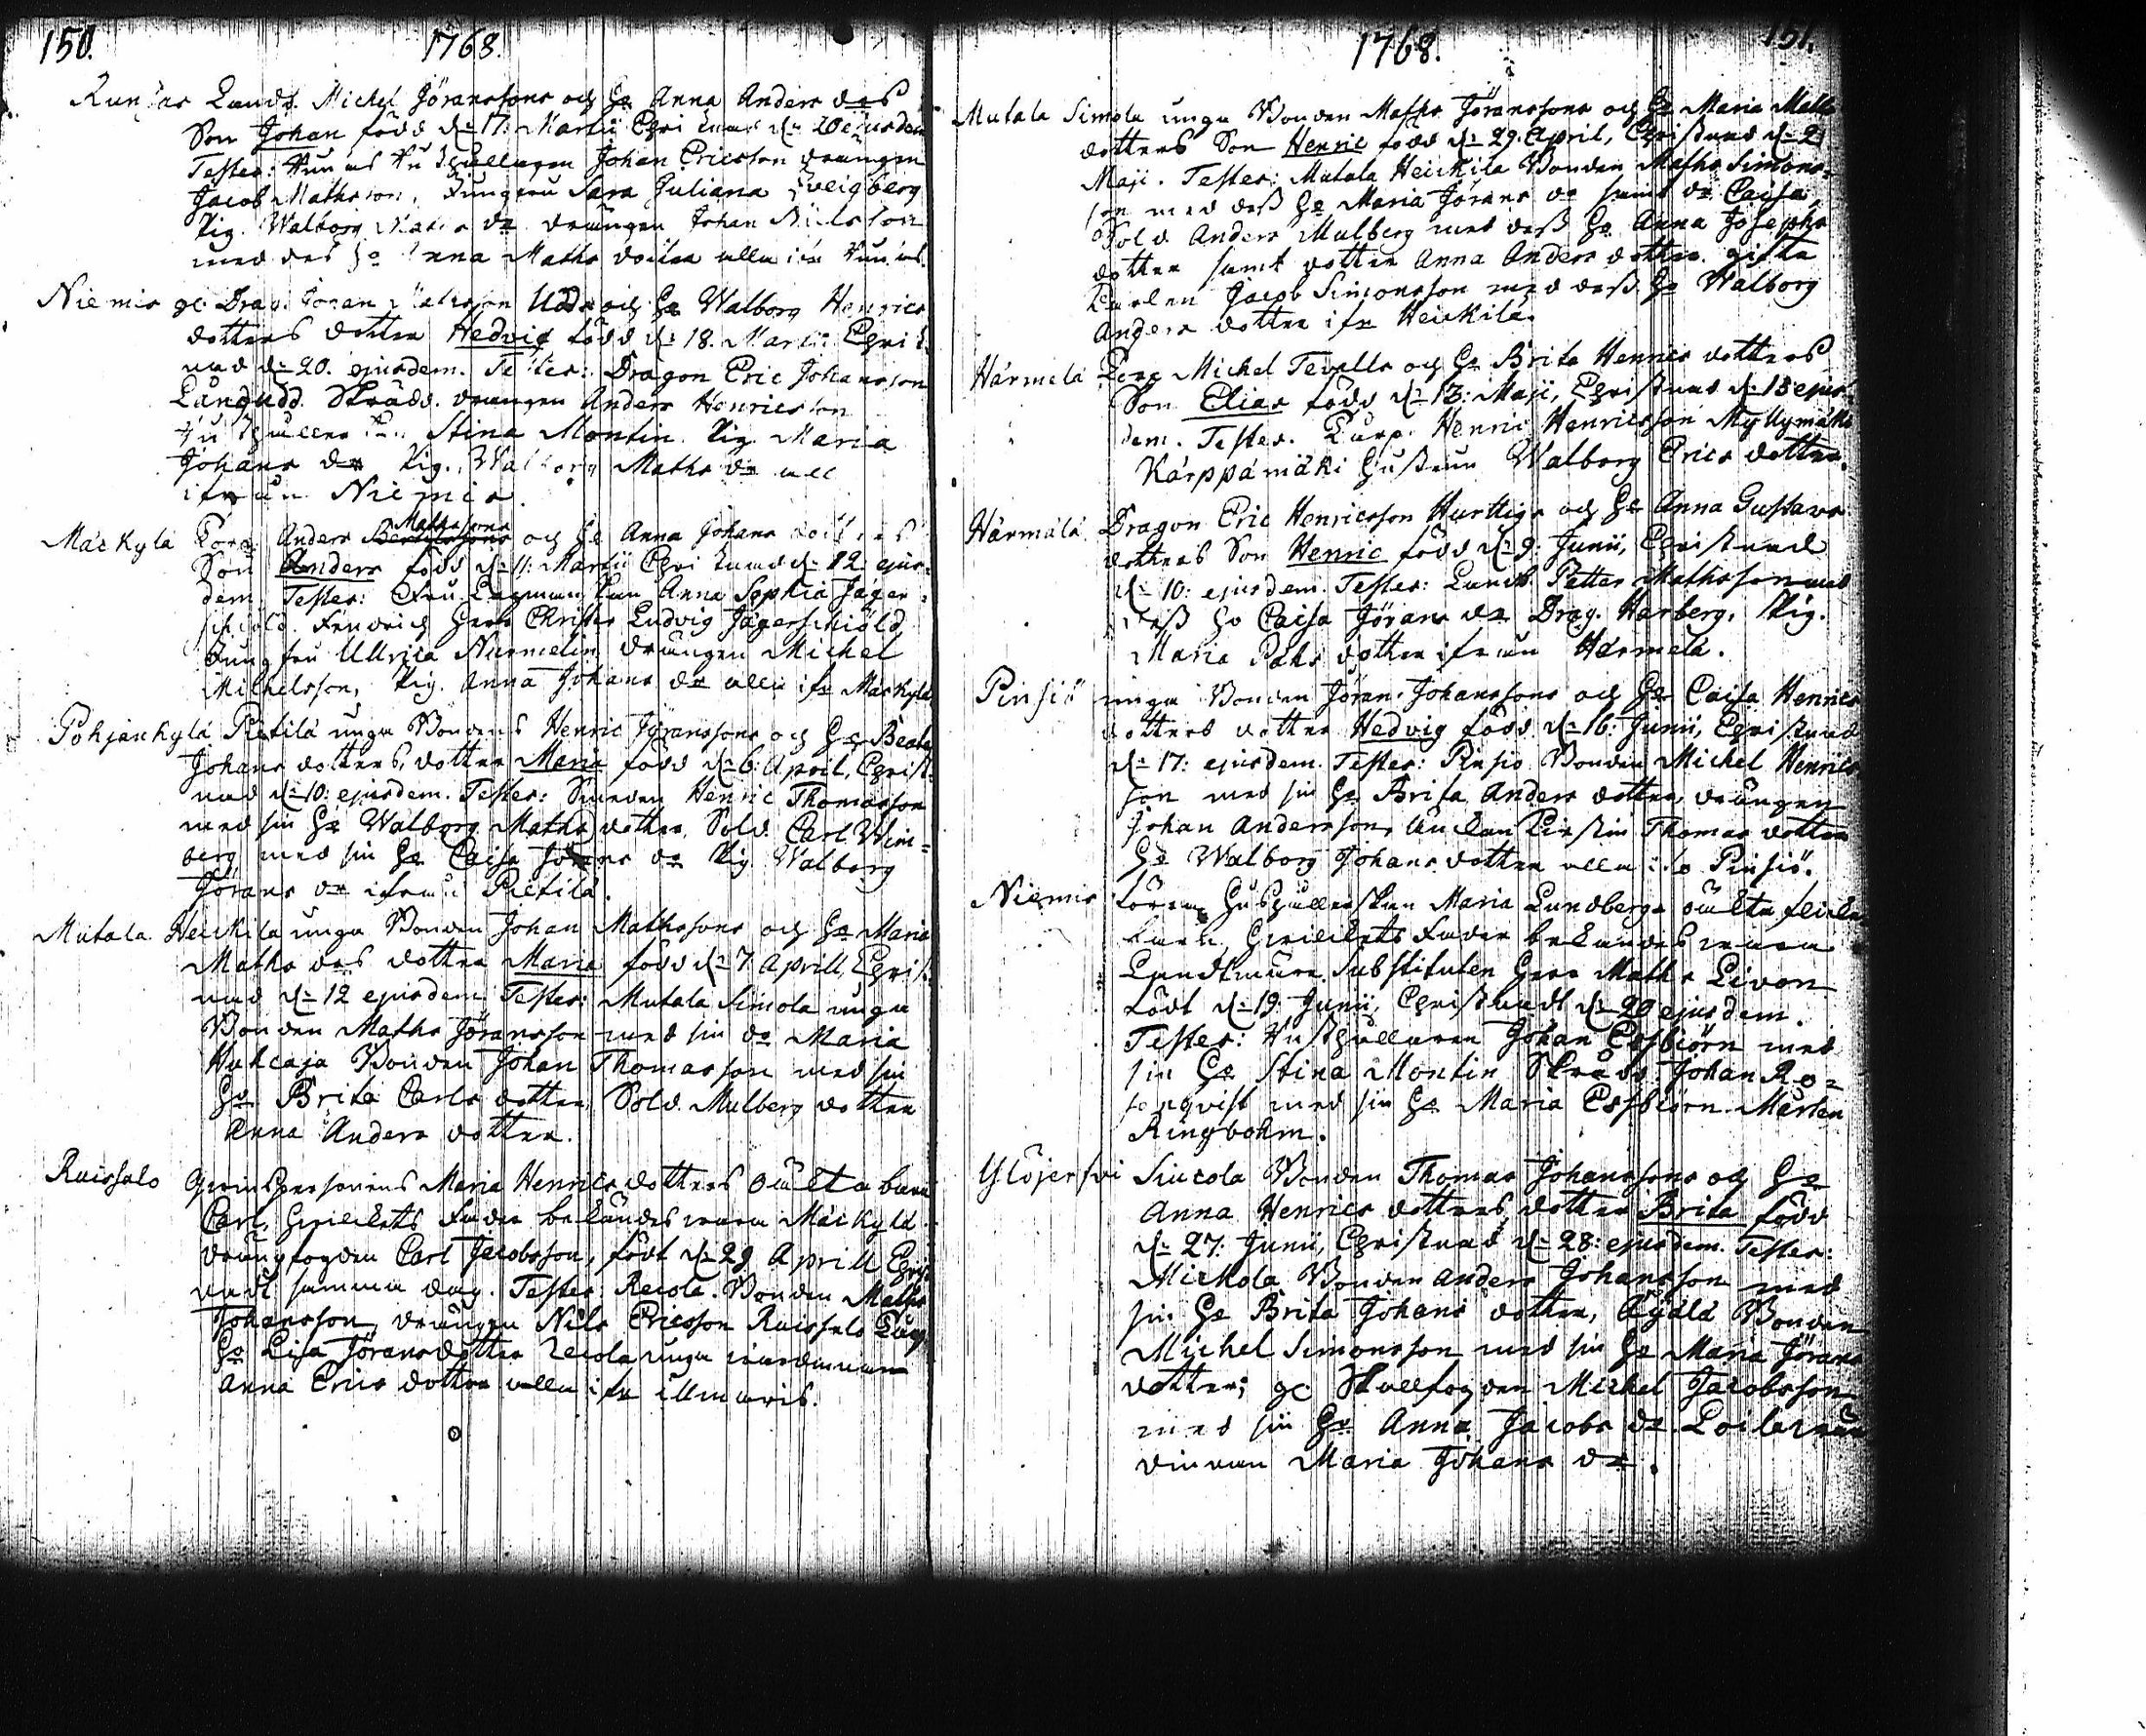 150. 1768.
Lands. Michel Jöranssons och Ho Anna Anders des
Son Johan född d: 17: Martii Chri d: 20 ejusdem
Testes: Johan Ericsson drängen
Jacob Mathsson, Jungfru Sara Juliana
Pig. Walborg dr drängen Johan
med des Ho Anna Maths dotter alla ifr
Niemis gl. Drag. Johan Udd och Ho Walborg Henrics
dotters dotter Hedvig född d: 18. Martii Chrit
nad d: 20. ejusdem. Testes: Dragon Eric Johansson
Långudd. Skräd. drängen Anders Henricsson
Stina Montin. Pig. Maria
Johans dr Pig. Walborg Maths dr all
ifrån Niemis.
Mathssons
Mäckylä Anders och Ho Anna Johans dotters
Son Anders född d: 11: Martii Chri d: 12: ejus=
dem. Testes: Fru Anna Sophia Jäger=
schiöld. Fendrich Herr Christer Ludvig Jägerschiöld
Jungfru Ullrica Nurmelin drängen Michel
Michelsson, Pig. Anna Johans dr alla ifr Mäckylä
Pohjankylä Pietilä unga Bondens Henric Jöranssons och Ho Beata
Johans dotters, dotter Maria född d: 6: April, Christ=
nad d: 10: ejusdem. Testes: Smeden Henric Thomasson
med sin Ho Walborg Maths dotter. Sold. Carl Wim=
berg med sin Ho Caisa Jörans dr Pig. Walborg
Jörans dr ifrån Pietilä.
Mutala Heickila unga Bonden Johan Mathssons och Ho Maria
Maths des dotter Maria född d: 7 Aprill, Christ
nad d: 12 ejusdem Testes: Mutala Simola unga
Bonden Maths Jöransson med sin do Maria
Bonden Johan Thomasson med sin
Ho Brita Carls dotter Sold. Mulberg dotter
Anna Anders dotter.
Ruissalo Maria Henrics dotters oäkta barn
Carl, Hvilckets Fader beländes vara Mäckylä
drängfogden Carl Jacobsson, födt d: 29 Aprill Chrit
nadt samma dag. Testes Bonden Maths
Johansson, drängen Nils Ericsson Ruissalo
Ho Lisa Jörans dotter unga
Anna Erics dotter alla ifr illmaris.
1768. 151.
Mutala Simola unga Bonden Maths Jöranssons och Ho Maria Maths
dotters Son Henric född d: 29. April, Christnad d: 2
Maji. Testes: Mutala Heickila Bonden Maths Simons=
son med dess Ho Maria Jörans dr samt dr Caisa,
Sold Anders Mulberg med dess Ho Anna Josephs
dotter samt dotter Anna Anders dotter. gifta
Karlen Jacob Simonsson med dess Ho Walborg
Anders dotter ifr Heickilä.
Härmelä Michel Tevells och Ho Brita Henrics dotters
Son Elias född d: 13: Maji, Christnad d: 15 ejus
dem. Testes. Henric Henricsson Myllymäki
Kärppämäki Hustrun Walborg Erics dotter.
Härmälä Dragon Eric Henricsson Hurtigs och Ho Anna Gustavs
dotters Son Henric född d: 9: Junii, Christnad
d: 10: ejusdem. Testes: Lands. Petter Mathsson med
dess Ho Caisa Jörans dr Drag. Harberg. Pig.
Maria Påhls dotter ifrån Härmelä.
Pinsiö unga Bonden Jöran Johanssons och Ho Caisa Henrics
dotters dotter Hedvig född d: 16: Junii, Christnad
d: 17: ejusdem. Testes: Pinsiö Bonden Michel Henrics
son med sin Ho Brita Anders dotter, drängen
Johan Andersson, änckan Kirstin Thomas dotter
Ho Walborg Johans dotter alla ifr Pinsiö.
Niemis Hushållerskan Maria Lundbergs oäkta flicke
barn, Hvilckets Fader beländes vara
Landtmäre Substituten Herr Maths Livon
Födt d: 19. Junii, Christnadt d: 20 ejusdem.
Testes: Hushållaren Johan Essbiörn med
sin Ho Stina Montin Skräd. Johan Ro=
senqvist med sin Ho Maria Essbiörn. Mårten
Ringbohm.
Ylöjerfvi Siucola Bonden Thomas Johanssons och Ho
Anna Henrics dotters dotter Brita född
d: 27: Junii, Christnad d: 28: ejusdem. Testes:
Mickola Bonden Anders Johansson med
sin Ho Brita Johans dotter, Äijälä Bonden
Michel Simonsson med sin Ho Maria Jörans
dotter; gl. Skallfogden Michel Jacobsson
med sin Ho Anna Jacobs dr.
qvinnan Maria Johans dr.